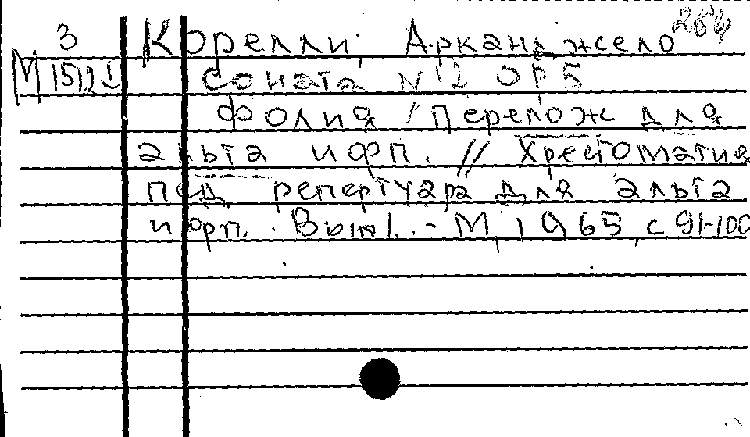 264
З Корелли, Арканджело
М Соната № 12 ор 5
Фолия / Перелож для
альта и фп. // Хрестоматия
пед. репертуара для альта
и фп. Вып 1. - М, 1965, с 91-100